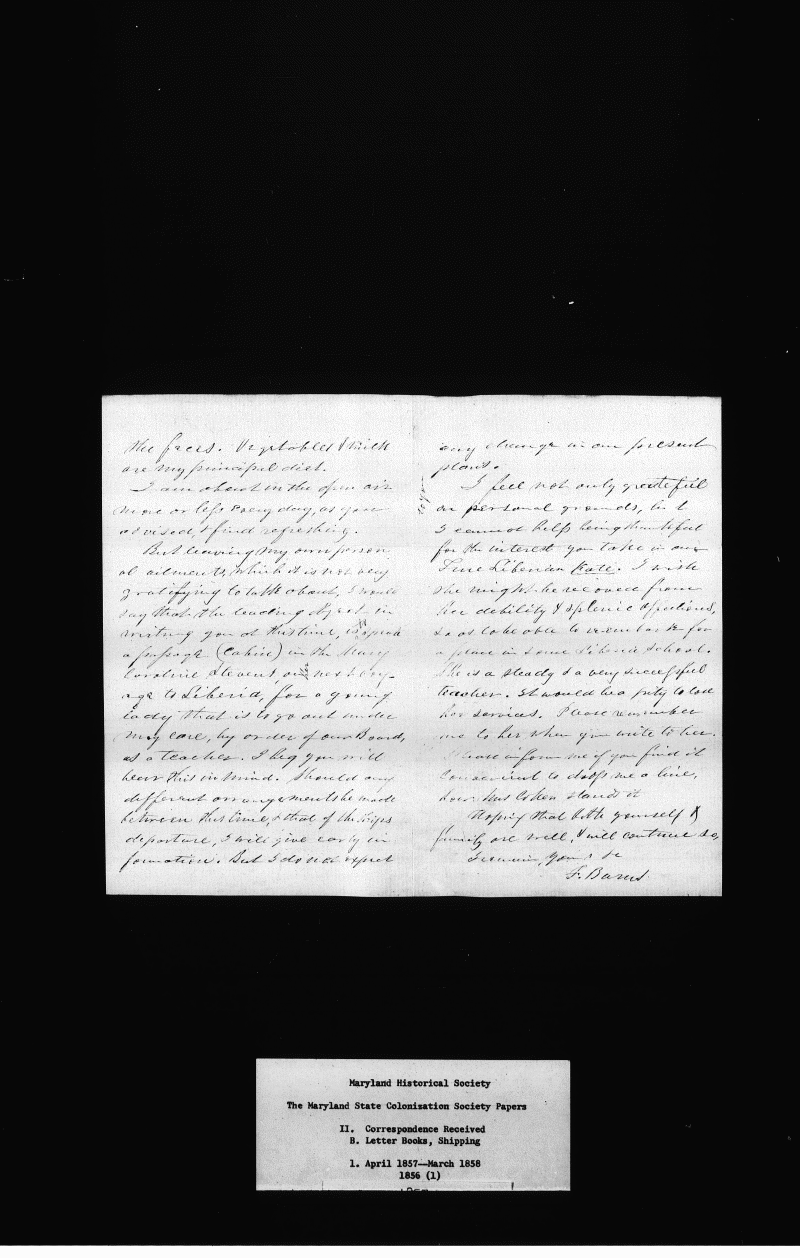 the faces. Vegetables & milk
are my principal diet.
I am about in the open air
more or less every day, as you
advised, & find refreshing.
But leaving my own person
al ailments, which it is not very
gratifying to talk about, I would
say that the leading object in
writing you at this time, is to
a passage (Cabin) in the Mary
Caroline Stevens on her next voy-
age to Liberia, for a young
lady that is to go out under
my care, by order of our Board,
as a teacher. I beg you will
bear this in mind. Should any
different arrangements be made
between this time, & that of the ships
departure, I will give early in
formation. But I do not expect
any change in our present
plans.
I feel not only grateful
on personal grounds, but
I cannot help being thankful
for the interest you take in our
True Liberian Kate. I wish
she might be recovered from
her debility & splenic affections,
so as to be able to for
a place in some Liberia School.
She is a steady & a very successful
teacher. It would be a pity to lose
her services. Please remember
me to her when you write to her.
Please inform me if you find it
convenient to drop me a line,
how Mrs Cohen stands it
Hoping that both yourself &
family are well, & will continue so,
I remain, yours &c
F. Burns
Maryland Historical Society
The Maryland State Colonization Society Papers
II. Correspondence Received
B. Letter Books, Shipping
1. April 1857--March 1858
1856 (1)